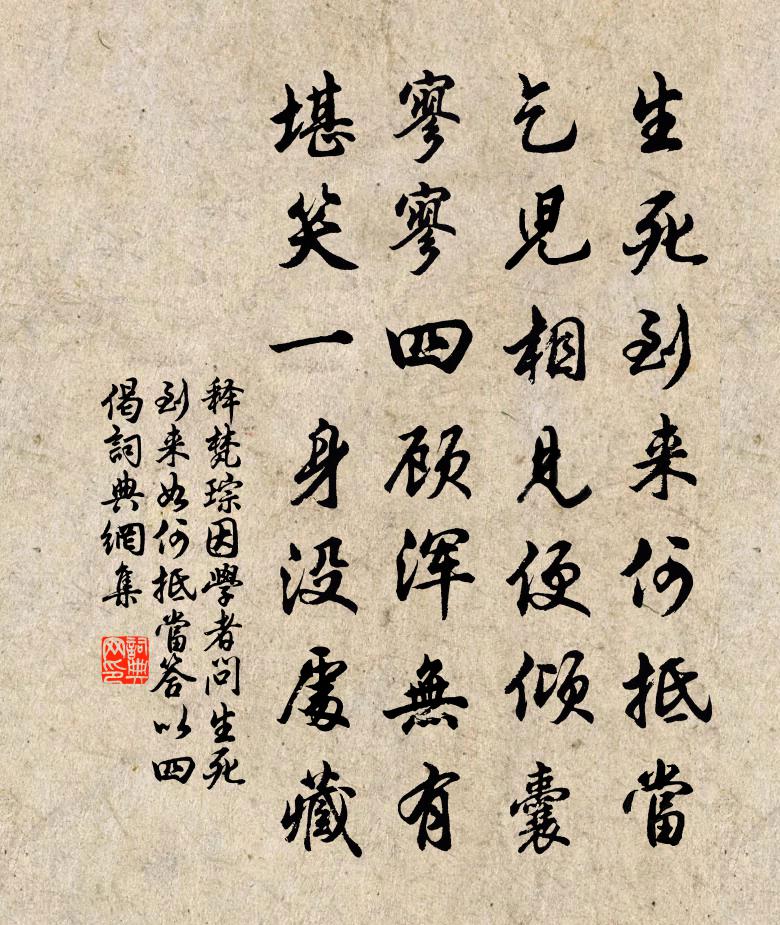 生死到来何抵當
乞児相見便倾囊
寥寥四顾浑無有
堪笑一身没處藏
释梵琮因學者问生死
到来如何抵當答以四
偈詞典網集
詞典网印